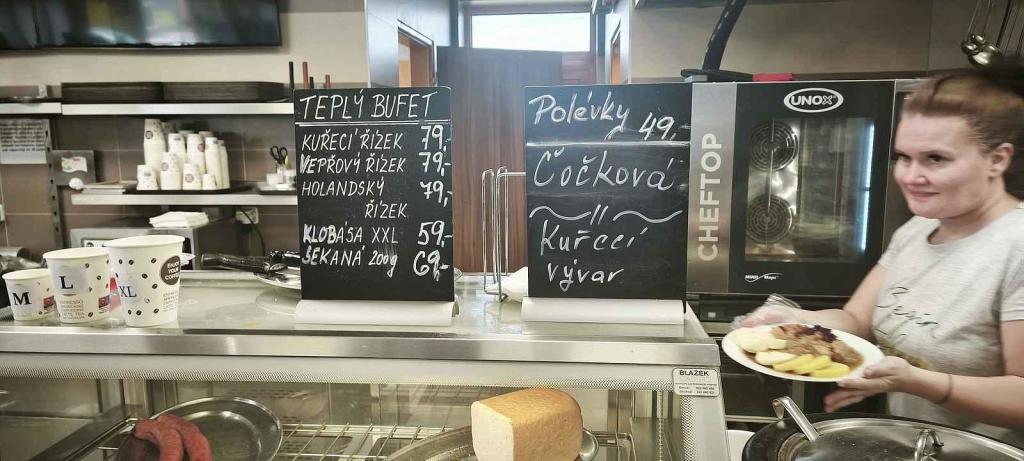 TEPLÝ BUFET
KUŘECÍ ŘÍZEK 79,-
VEPŘOVÝ ŘÍZEK 79,-
HOLANDSKÝ 79,-
ŘÍZEK
KLOBÁSA XXL 59,-
SEKANÁ 200g 69,-
Polévky
49,-
Čočková
Kuřecí
vývar
UNOX
CHEFTOP
M
L
XL
ENJOY
YOUR
COFFEE
BLAŽEK